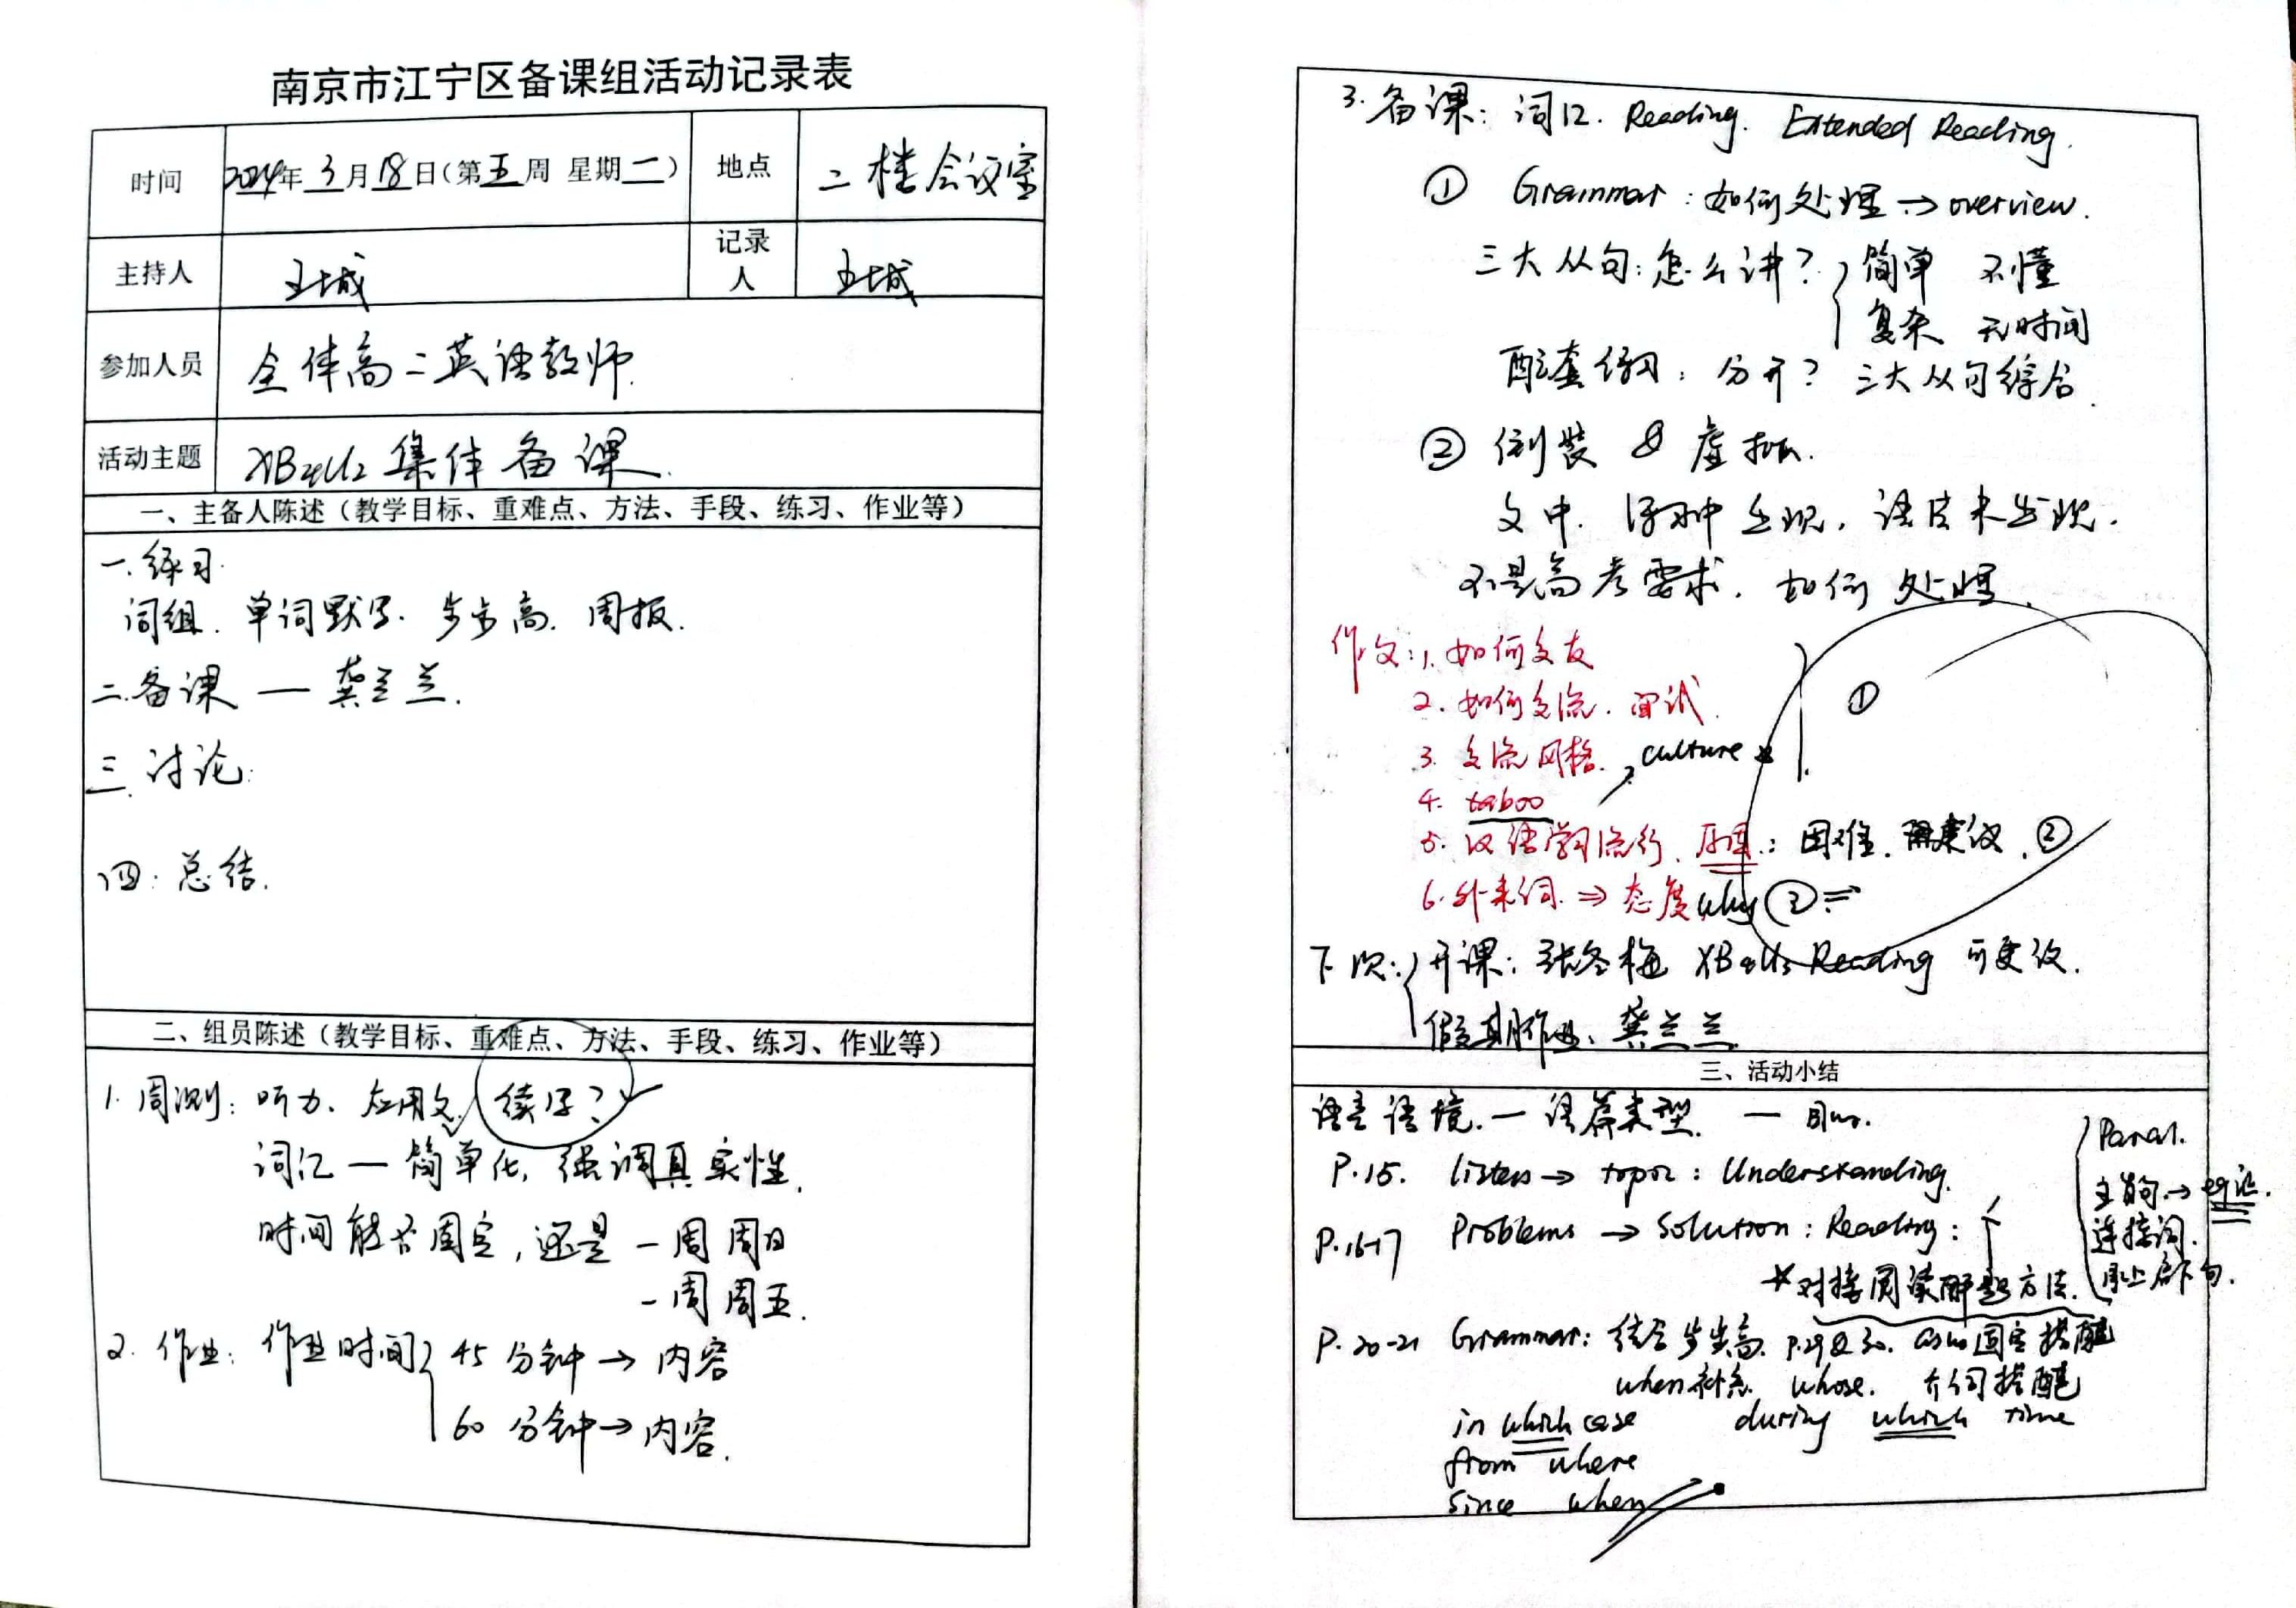 南京市江宁区备课组活动记录表
时间 2024年3月18日(第五周 星期二) 地点 二楼会议室
主持人 王城 记录人 王城
参加人员 全体高二英语教师.
活动主题 XB4U2 集体备课.
一、主备人陈述(教学目标、重难点、方法、手段、练习、作业等)
一.练习
词组. 单词默写. 步步高. 周报.
二.备课 — 龚兰兰.
三.讨论:
四: 总结.
二、组员陈述(教学目标、重难点、方法、手段、练习、作业等)
1. 周测: 听力. 应用文. 续写?
词汇 — 简单化, 强调真实性.
时间能否固定, 还是 一周 周日
一周 周五.
2. 作业: 作业时间 45分钟 → 内容
60分钟 → 内容.
3. 备课: 词汇. Reading. Extended Reading.
① Grammar: 如何处理 → overview.
三大从句: 怎么讲? 简单 不懂
复杂 无时间
配套练习: 分开? 三大从句综合.
② 倒装 & 虚拟.
文中. 练习中出现, 语法未出现.
不是高考要求. 如何处理.
作文: 1. 如何交友
2. 如何交流. 面试. ①
3. 交流风格. culture
4. taboo
5. 汉语学习流行. 原因: 困难. 建议. ②
6. 外来词 ⇒ 态度 why ③
下次: 开课: 张冬梅 XB4U3 Reading 可更改.
假期作业: 龚兰兰.
三、活动小结
语言语境. — 语篇类型. —
P.15. listen → topic: Understanding.
P.16-17 Problems → Solution: Reading:
Para1.
主旨句. →
连接词.
*对接阅读解题方法.
P.20-21 Grammar: 结合步步高. P.29 & 30. as 固定搭配
when 补充. whose. 介词搭配
in which case during which time
from where
since when